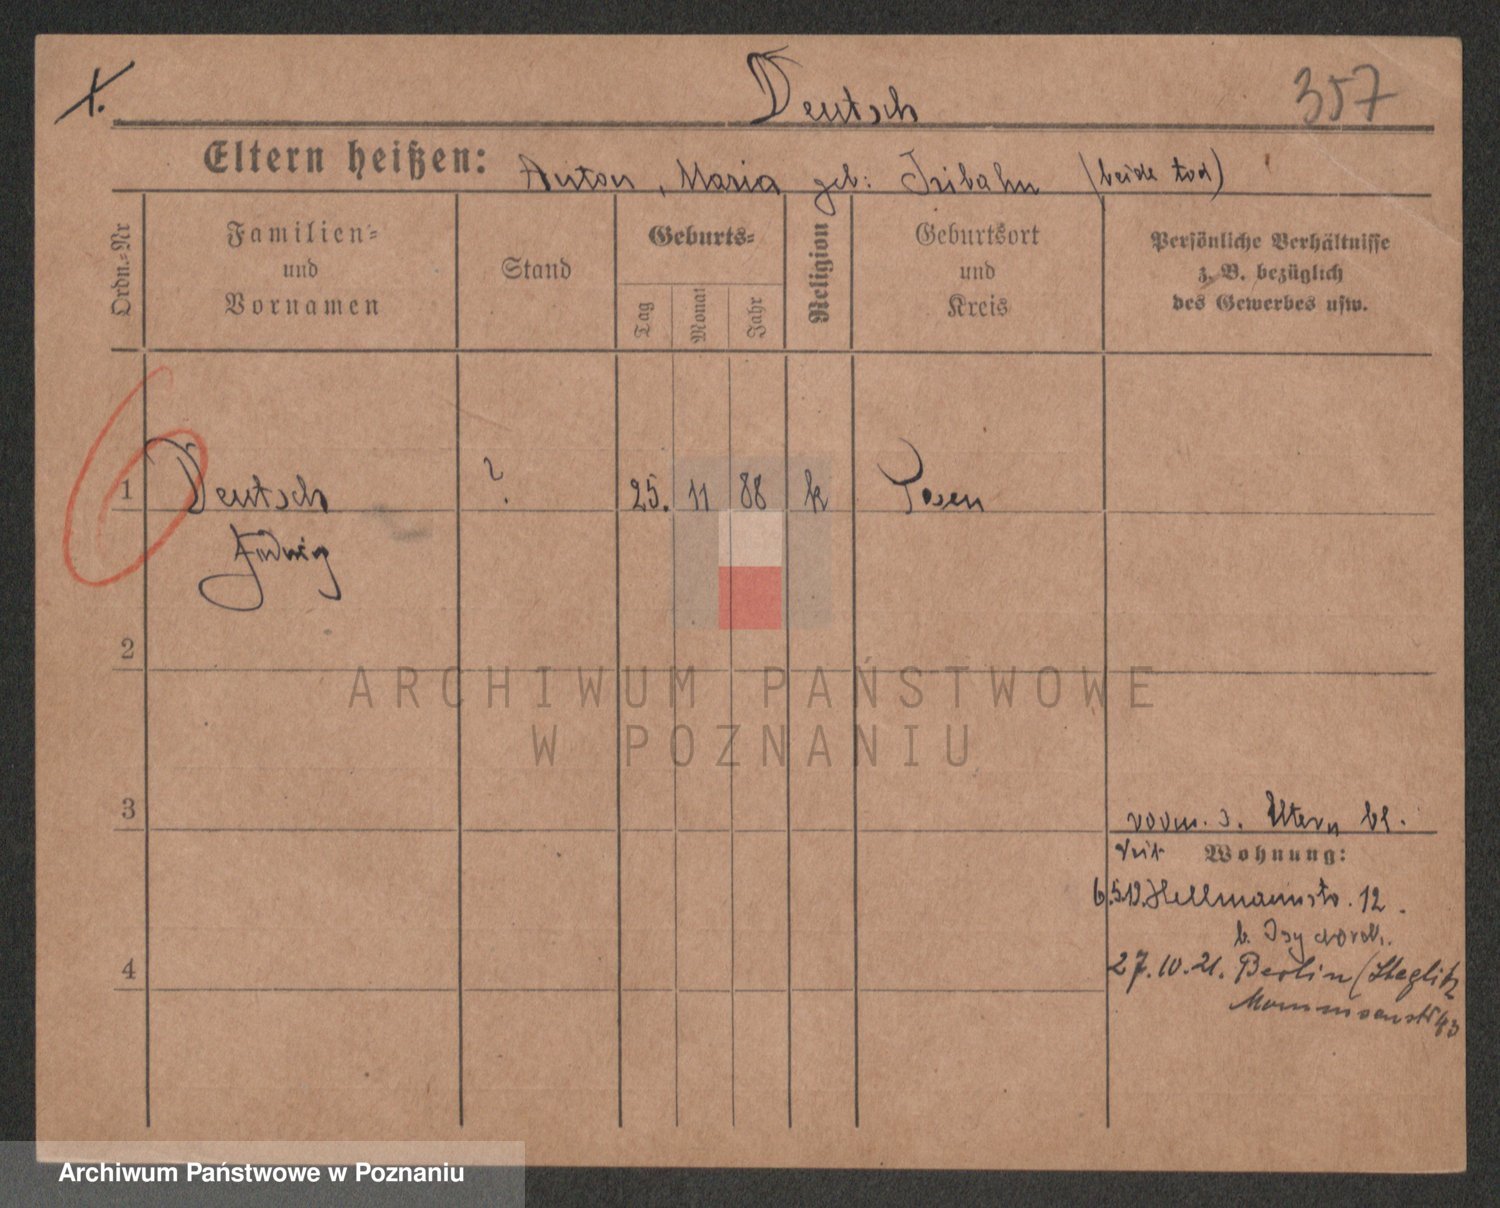 X. Deutsch 357
Eltern heißen: Anton, Maria geb: Tribahn (beide tod)
Ordn.-Nr
Familien-
und
Vornamen
Stand
Geburts-
Tag
Monat
Jahr
Religion
Geburtsort
und
Kreis
Persönliche Verhältnisse
z. B. bezüglich
des Gewerbes usw.
1 Deutsch ? 25. 11 88 k Posen
Ludwig
2
ARCHIWUM PAŃSTWOWE
W POZNANIU
3
vorm. s. Eltern bl.
seit Wohnung:
Hellmannstr. 12.
b.
4
27.10.21. Berlin (Steglitz
Mommsenstr 43
Archiwum Państwowe w Poznaniu